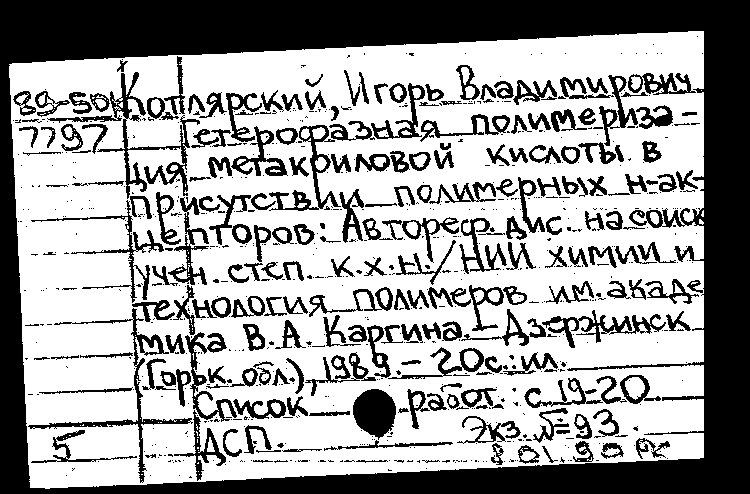 89-50к Котлярский, Игорь Владимирович
7797 Гетерофазная полимериза-
ция метакриловой кислоты в
присутствии полимерных н-ак-
цепторов: Автореф. дис. на соиск
учен. степ. к.х.н. / НИИ химии и
технология полимеров им. акаде
мика В. А. Каргина. - Дзержинск
(Горьк. обл.), 1989. - 20с.: ил.
Список работ.: с. 19-20
5 ДСП. Экз. №=93.
8.01.90